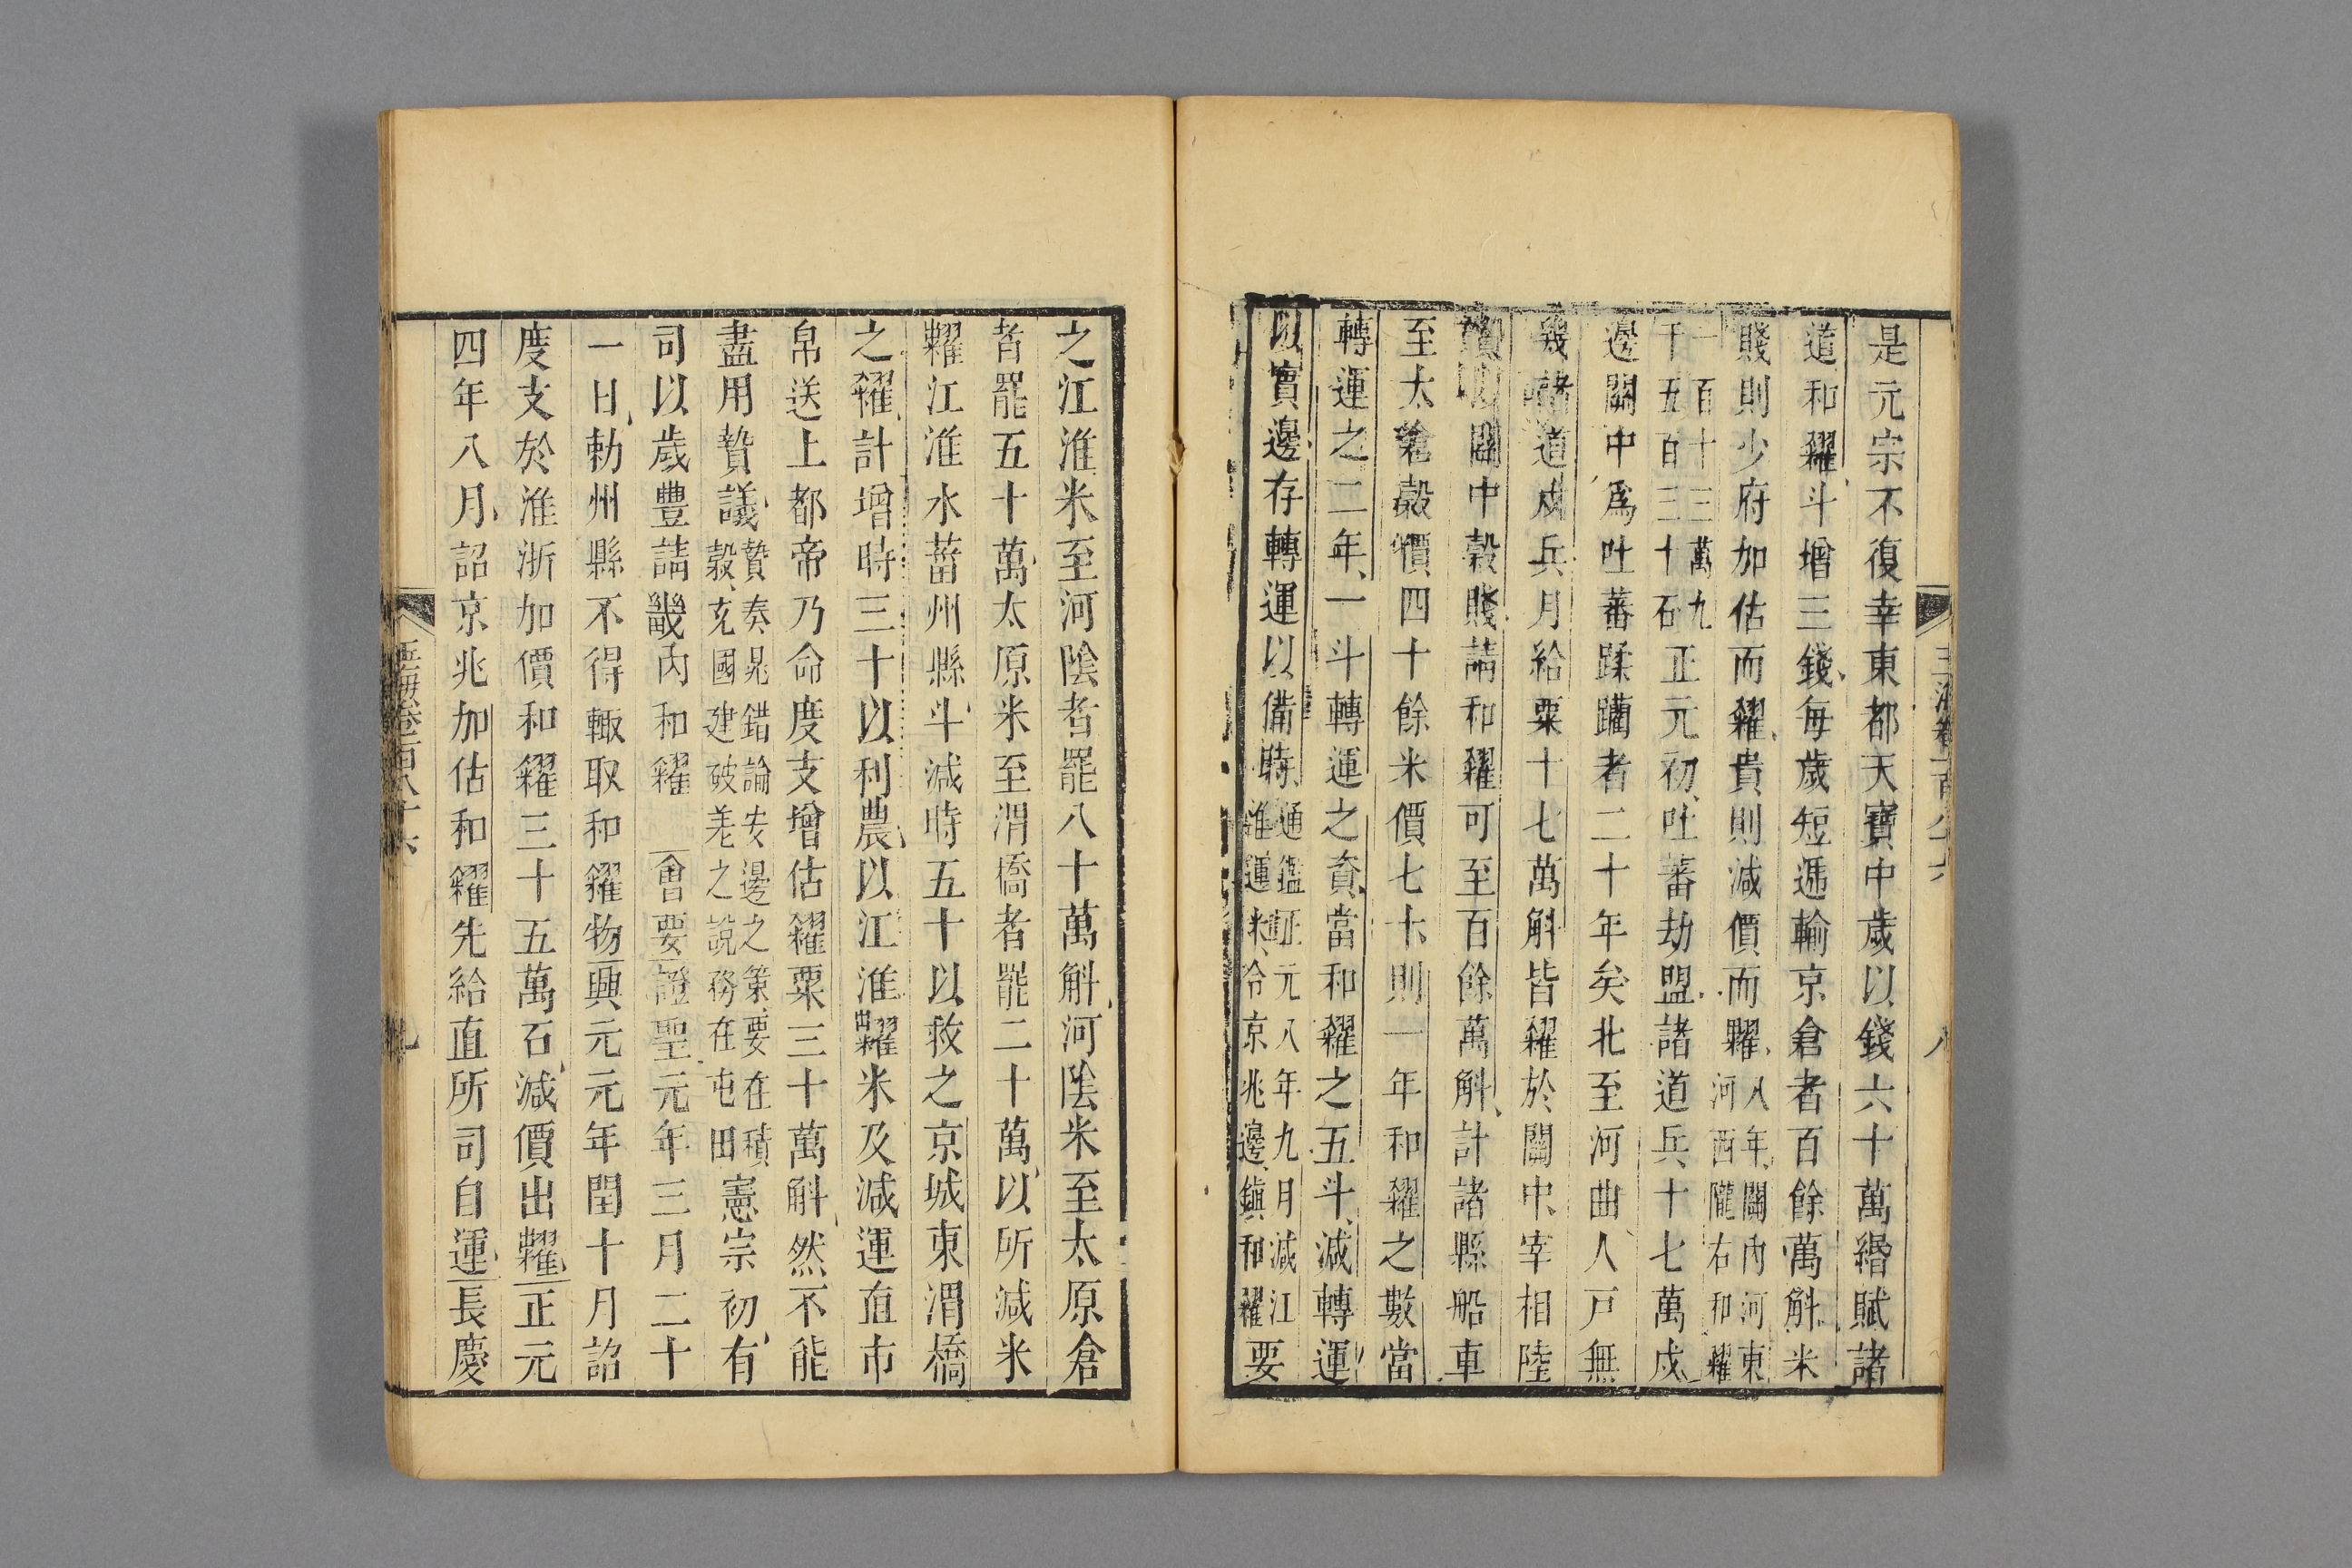 是元宗不復幸東都天寶中歲以錢六十萬緡賦諸
道和糴斗增三錢每歲短遞輸京倉者百餘萬斛米
賤則少府加估而糴貴則減價而糶八年關内河東河西隴右和糴
一百十三萬九千五百三十石正元初吐蕃劫盟諸道兵十七萬戍
邊關中爲吐蕃蹂躪者二十年矣北至河曲人戸無
幾諸道戍兵月給粟十七萬斛皆糴於關中宰相陸
贄以關中穀賤請和糴可至百餘萬斛計諸縣船車
至太倉穀價四十餘米價七十則一年和糴之數當
轉運之二年一斗轉運之資當和糴之五斗減轉運
以實邊存轉運以備時通鑑正元八年九月減江淮運米令京兆邊鎭和糴要
之江淮米至河陰者罷八十萬斛河陰米至太原倉
者罷五十萬太原米至渭橋者罷二十萬以所減米
糶江淮水菑州縣斗減時五十以救之京城東渭橋
之糴計增時三十以利農以江淮糶米及減運直市
帛送上都帝乃命度支增估糴粟三十萬斛然不能
盡用贄議贄奏晁錯論安邊之策要在積穀充國建破羌之說務在屯田憲宗初有
司以歲豐請畿内和糴會要證聖元年三月二十
一日勅州縣不得輙取和糴物興元元年閏十月詔
度支於淮浙加價和糴三十五萬石減價出糶正元
四年八月詔京兆加估和糴先給直所司自運長慶
玉海卷一百八十六
九
玉海卷一百八十六
八